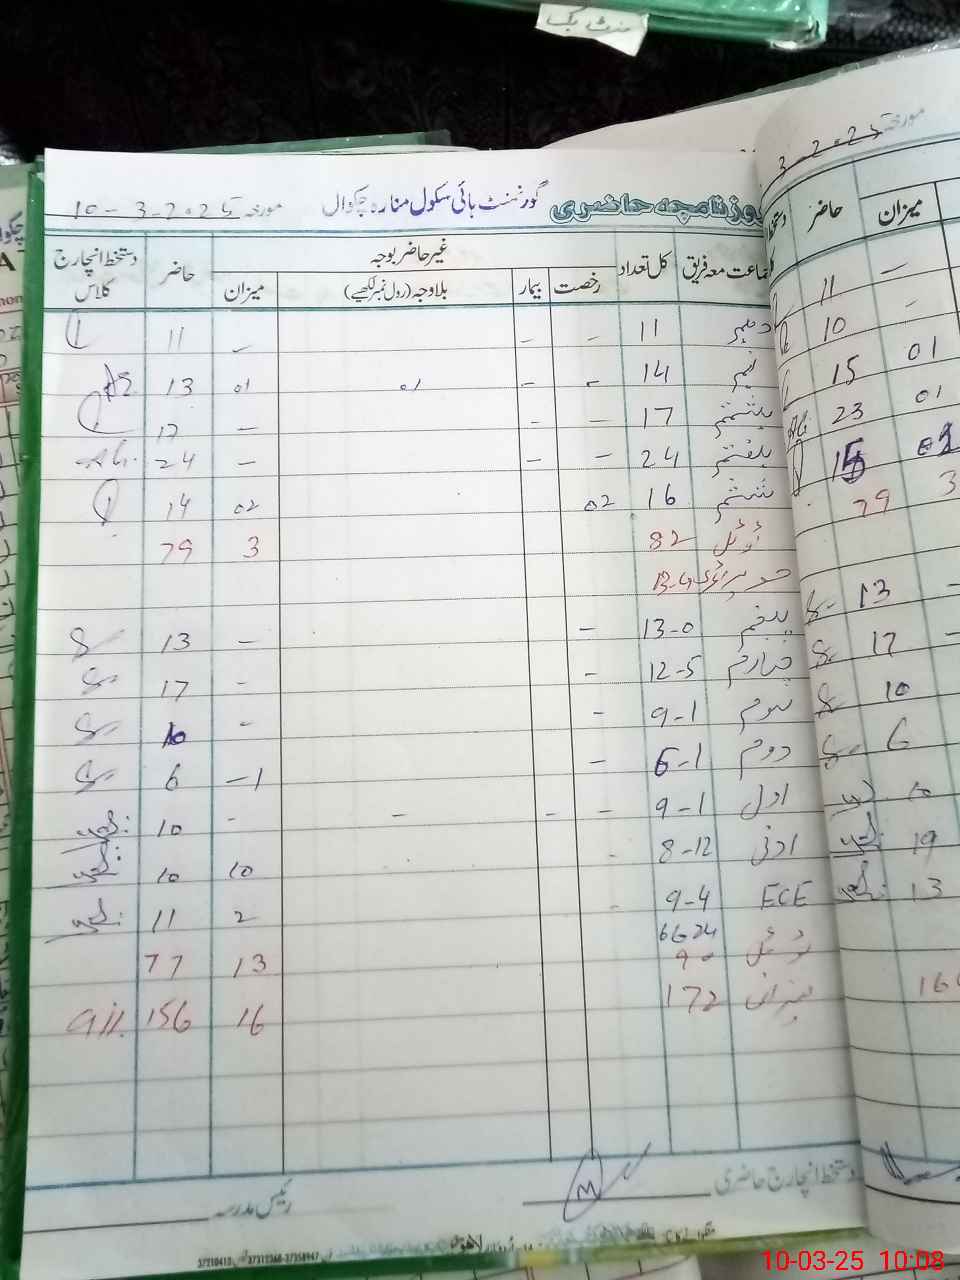 منٹ بک
روزنامچہ حاضری گورنمنٹ ہائی سکول منارہ چکوال مورخہ 10-3-2025
جماعت معہ فریق کل تعداد غیر حاضر بوجہ حاضر دستخط انچارج کلاس
رخصت بیمار بلاوجہ (رول نمبر لکھیے) میزان
دہم 11 - - - 11
نہم 14 - - 01 01 13
ہشتم 17 - - - 17
ہفتم 24 - - - 24
ششم 16 02 02 14
ٹوٹل 82 3 79
پنجم 13-0 - - 13
چہارم 12-5 - - 17
سوم 9-1 - - 10
دوم 6-1 - -1 6
اول 9-1 - - - - 10
ادنیٰ 8-12 10 10
ECE 9-4 2 11
66-24
ٹوٹل 90 13 77
میزان 172 16 156
دستخط انچارج حاضری
رئیس مدرسہ
مورخہ 3-2025
حاضر میزان
11 -
10 -
15 01
23 01
15
79 3
13 -
17 -
10
6
10
19
13
10-03-25 10:08